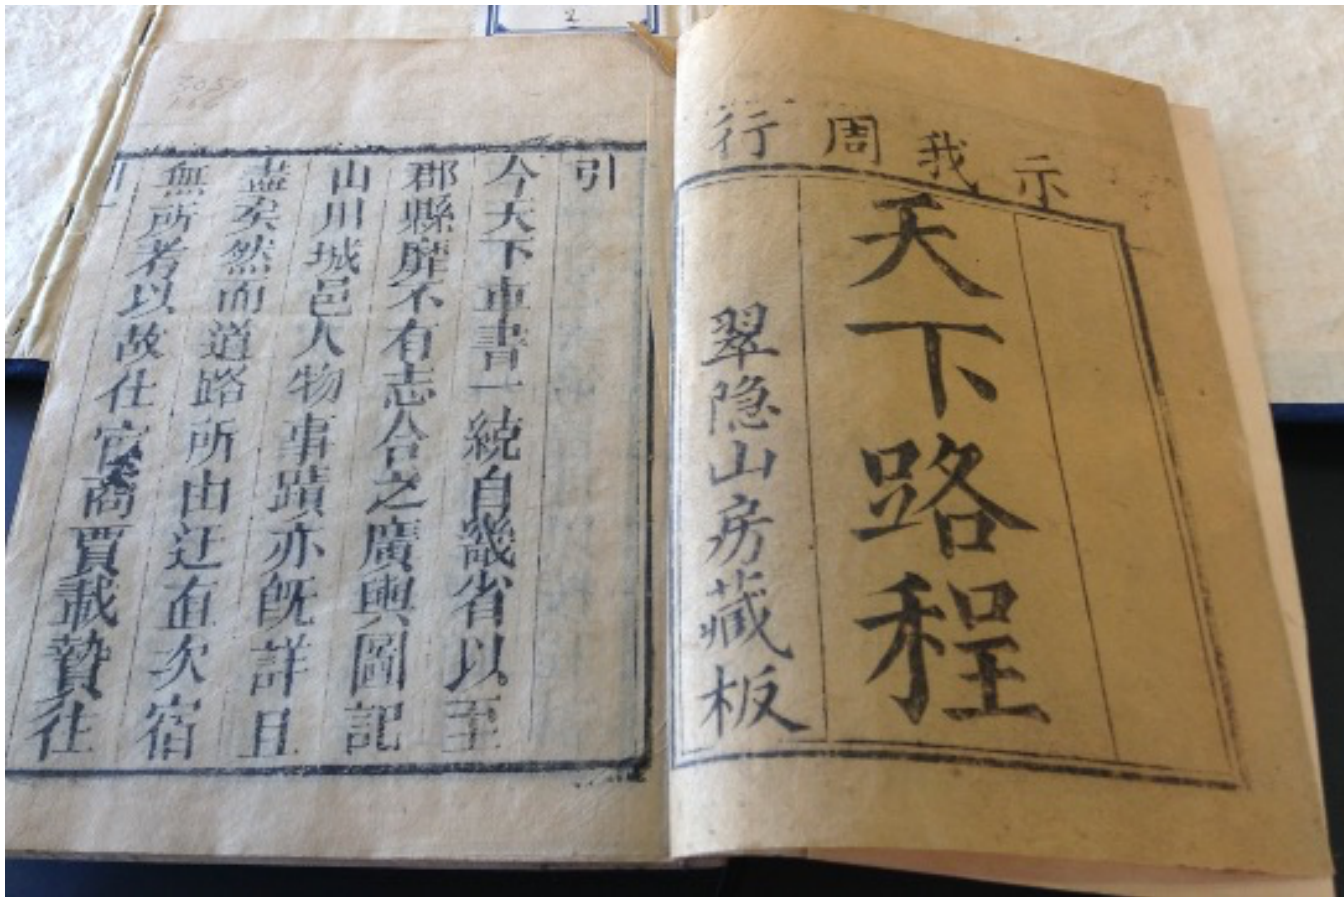 示我周行
天下路程
翠隐山房藏板
引
今天下車書一統自畿省以至
郡縣靡不有志合之廣輿圖記
山川城邑人物事蹟亦既詳且
盡矣然而道路所由迂直次宿
無所考以故仕宦商賈載贄往
2